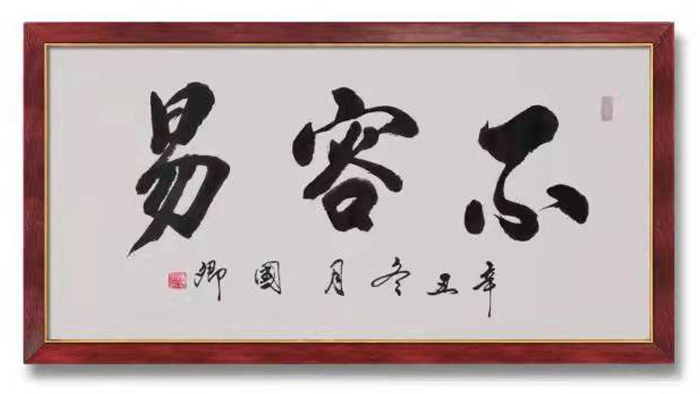 不容易
辛丑冬月國卿